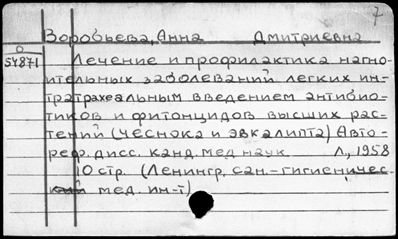 7
Воробьева, Анна Дмитриевна
О
54871
Лечение и профилактика нагно-
ительных заболеваний легких ин-
тратрахеальным введением антибио-
тиков и фитонцидов высших рас-
тений (чеснока и эвкалипта) Авто-
реф. дисс. канд. мед наук Л, 1958
10 стр. (Ленингр. сан.-гигиеничес-
кий мед. ин-т)